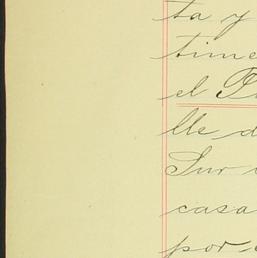 ta y
time
el P
lle d
Sur
casa
por